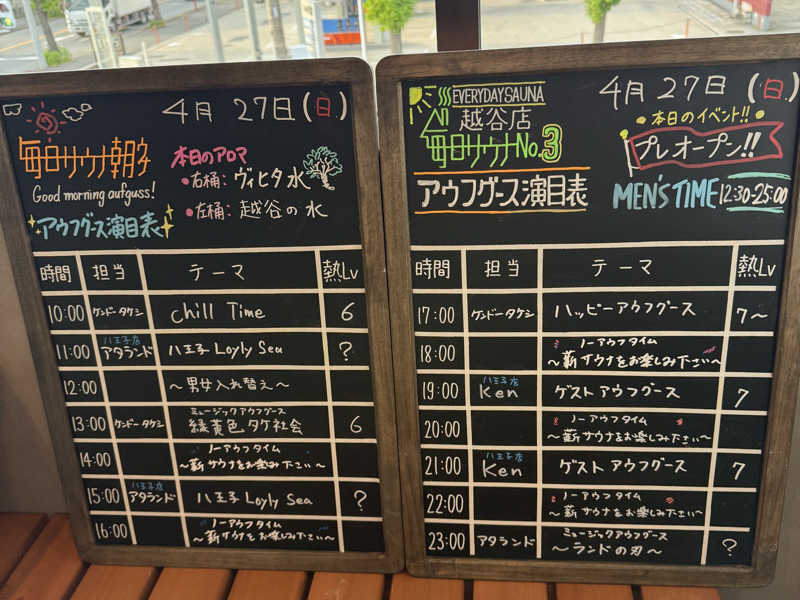 4月 27日 (日)
毎日サウナ 朝子
Good morning aufguss!
アウフグース演目表
本日のアロマ
・右桶: ヴィヒタ水
・左桶: 越谷の水
時間 担当 テーマ 熱Lv
10:00 ケンドータケシ chill Time 6
11:00 八王子店 アタランド 八王子 Loyly Sea ?
12:00 〜男女入れ替え〜
13:00 ケンドータケシ ミュージックアウフグース 緑黄色タケ社会 6
14:00 ノーアウフタイム 〜薪サウナをお楽しみ下さい〜
15:00 八王子店 アタランド 八王子 Loyly Sea ?
16:00 ノーアウフタイム 〜薪サウナをお楽しみ下さい〜
EVERYDAY SAUNA
越谷店
毎日サウナ No.3
アウフグース演目表
4月 27日 (日)
・本日のイベント!!・
プレオープン!!
MEN'S TIME 12:30-25:00
時間 担当 テーマ 熱Lv
17:00 ケンドータケシ ハッピーアウフグース 7〜
18:00 ノーアウフタイム 〜薪サウナをお楽しみ下さい〜
19:00 八王子店 Ken ゲストアウフグース 7
20:00 ノーアウフタイム 〜薪サウナをお楽しみ下さい〜
21:00 八王子店 Ken ゲストアウフグース 7
22:00 ノーアウフタイム 〜薪サウナをお楽しみ下さい〜
23:00 アタランド ミュージックアウフグース 〜ランドの刃〜 ?